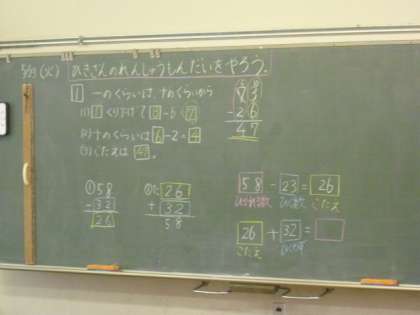 5/29 (火) ひきざんのれんしゅうもんだいをやろう。
1 一のくらいは、十のくらいから
(1) 1 くり下げて 13-6=7
(2) 十のくらいは 6-2=4
(3) こたえは 47
73
-26
47
① 58
-32
26
26
+32
58
58-23=26
ひかれる数 ひく数 こたえ
26+32=
こたえ ひく数